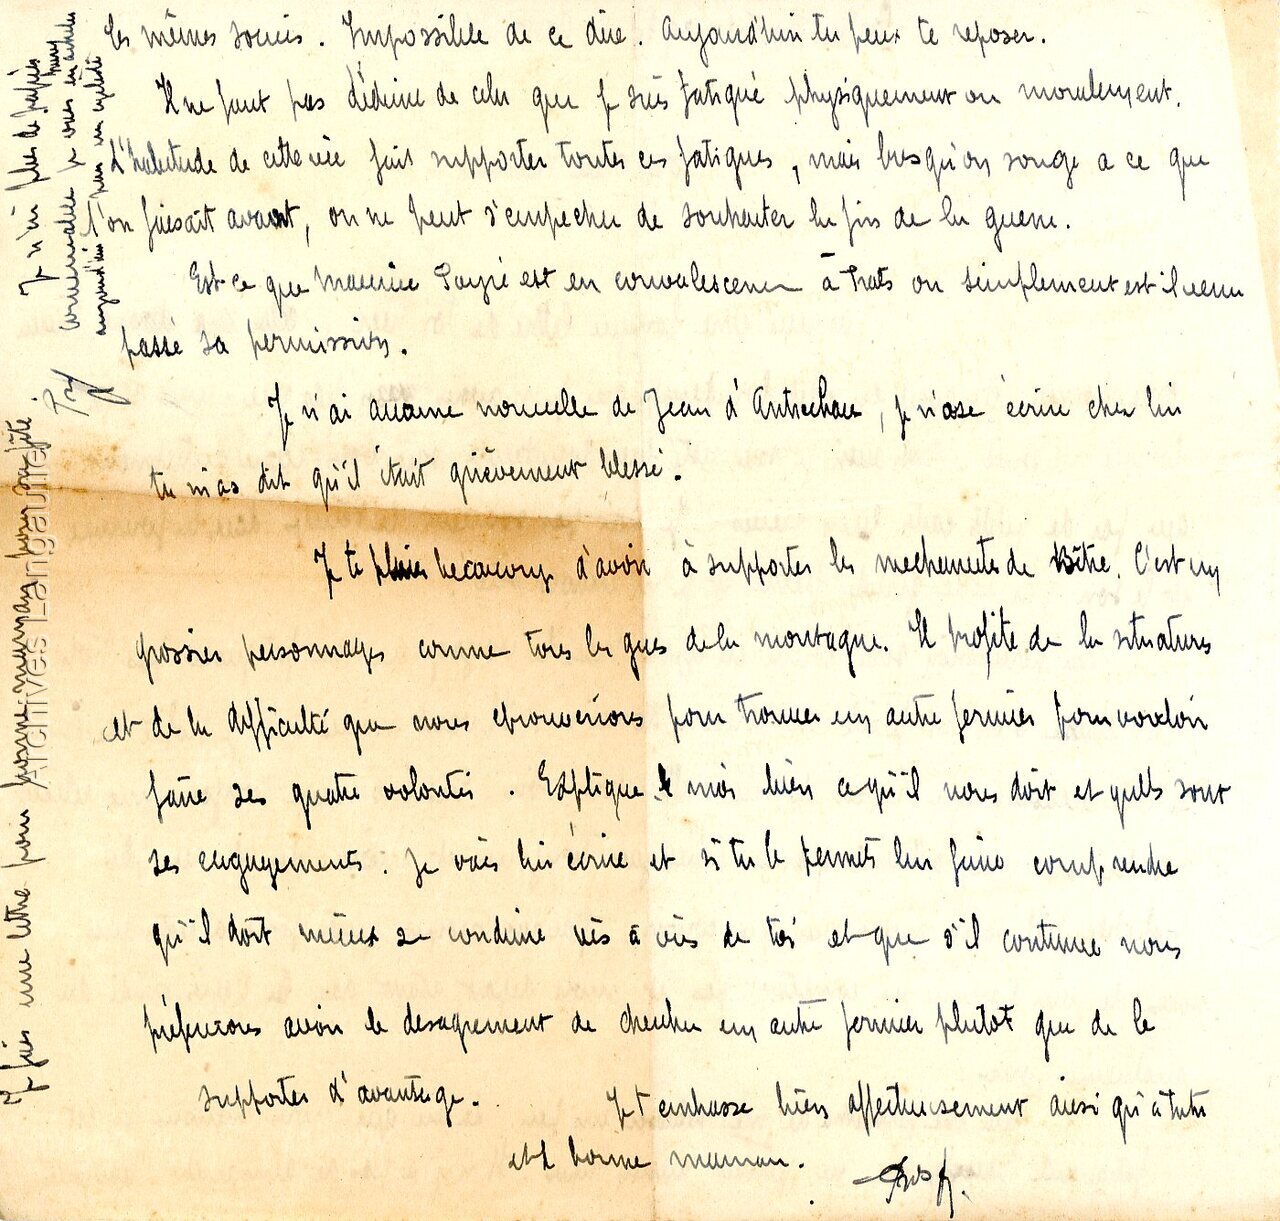 les mêmes soucis. Impossible de ce dire. Aujourd'hui tu peux te reposer.
Il ne faut pas déduire de cela que je suis fatigué physiquement ou moralement.
L'habitude de cette vie fait supporter toutes ces fatigues, mais lorsqu'on songe a ce que
l'on faisait avant, on ne peut s'empecher de souhaiter la fin de la guerre.
Est ce que Maurice est en convalescence à Prats ou simplement est il venu
passé sa permission.
Je n'ai aucune nouvelle de Jean d'Antrechaux, je n'ose écrire chez lui
tu m'as dit qu'il était grièvement blessé.
Je te plains beaucoup d'avoir à supporter les mechancetes de Bêtre. C'est un
grossier personnages comme tous les gens de la montagne. Il profite de la situation
et de la difficulté que nous eprouverions pour trouver un autre fermier pour vouloir
faire ses quatre volontés. Explique moi bien ce qu'il nous doit et quels sont
ses engagements. Je vais lui écrire et si tu le permets lui faire comprendre
qu'il doit mieux se conduire vis à vis de toi et que s'il continue nous
préferons avoir le desagrement de chercher un autre fermier plutot que de le
supporter d'avantage. Je t'embrasse bien affectueusement ainsi qu'à tata
et à bonne maman.
Josph.
Je n'ai plus de papier
convenable je vais en acheter
aujourd'hui
Je fais une lettre pour bonne maman pour sa fête.
Archives Langaunet